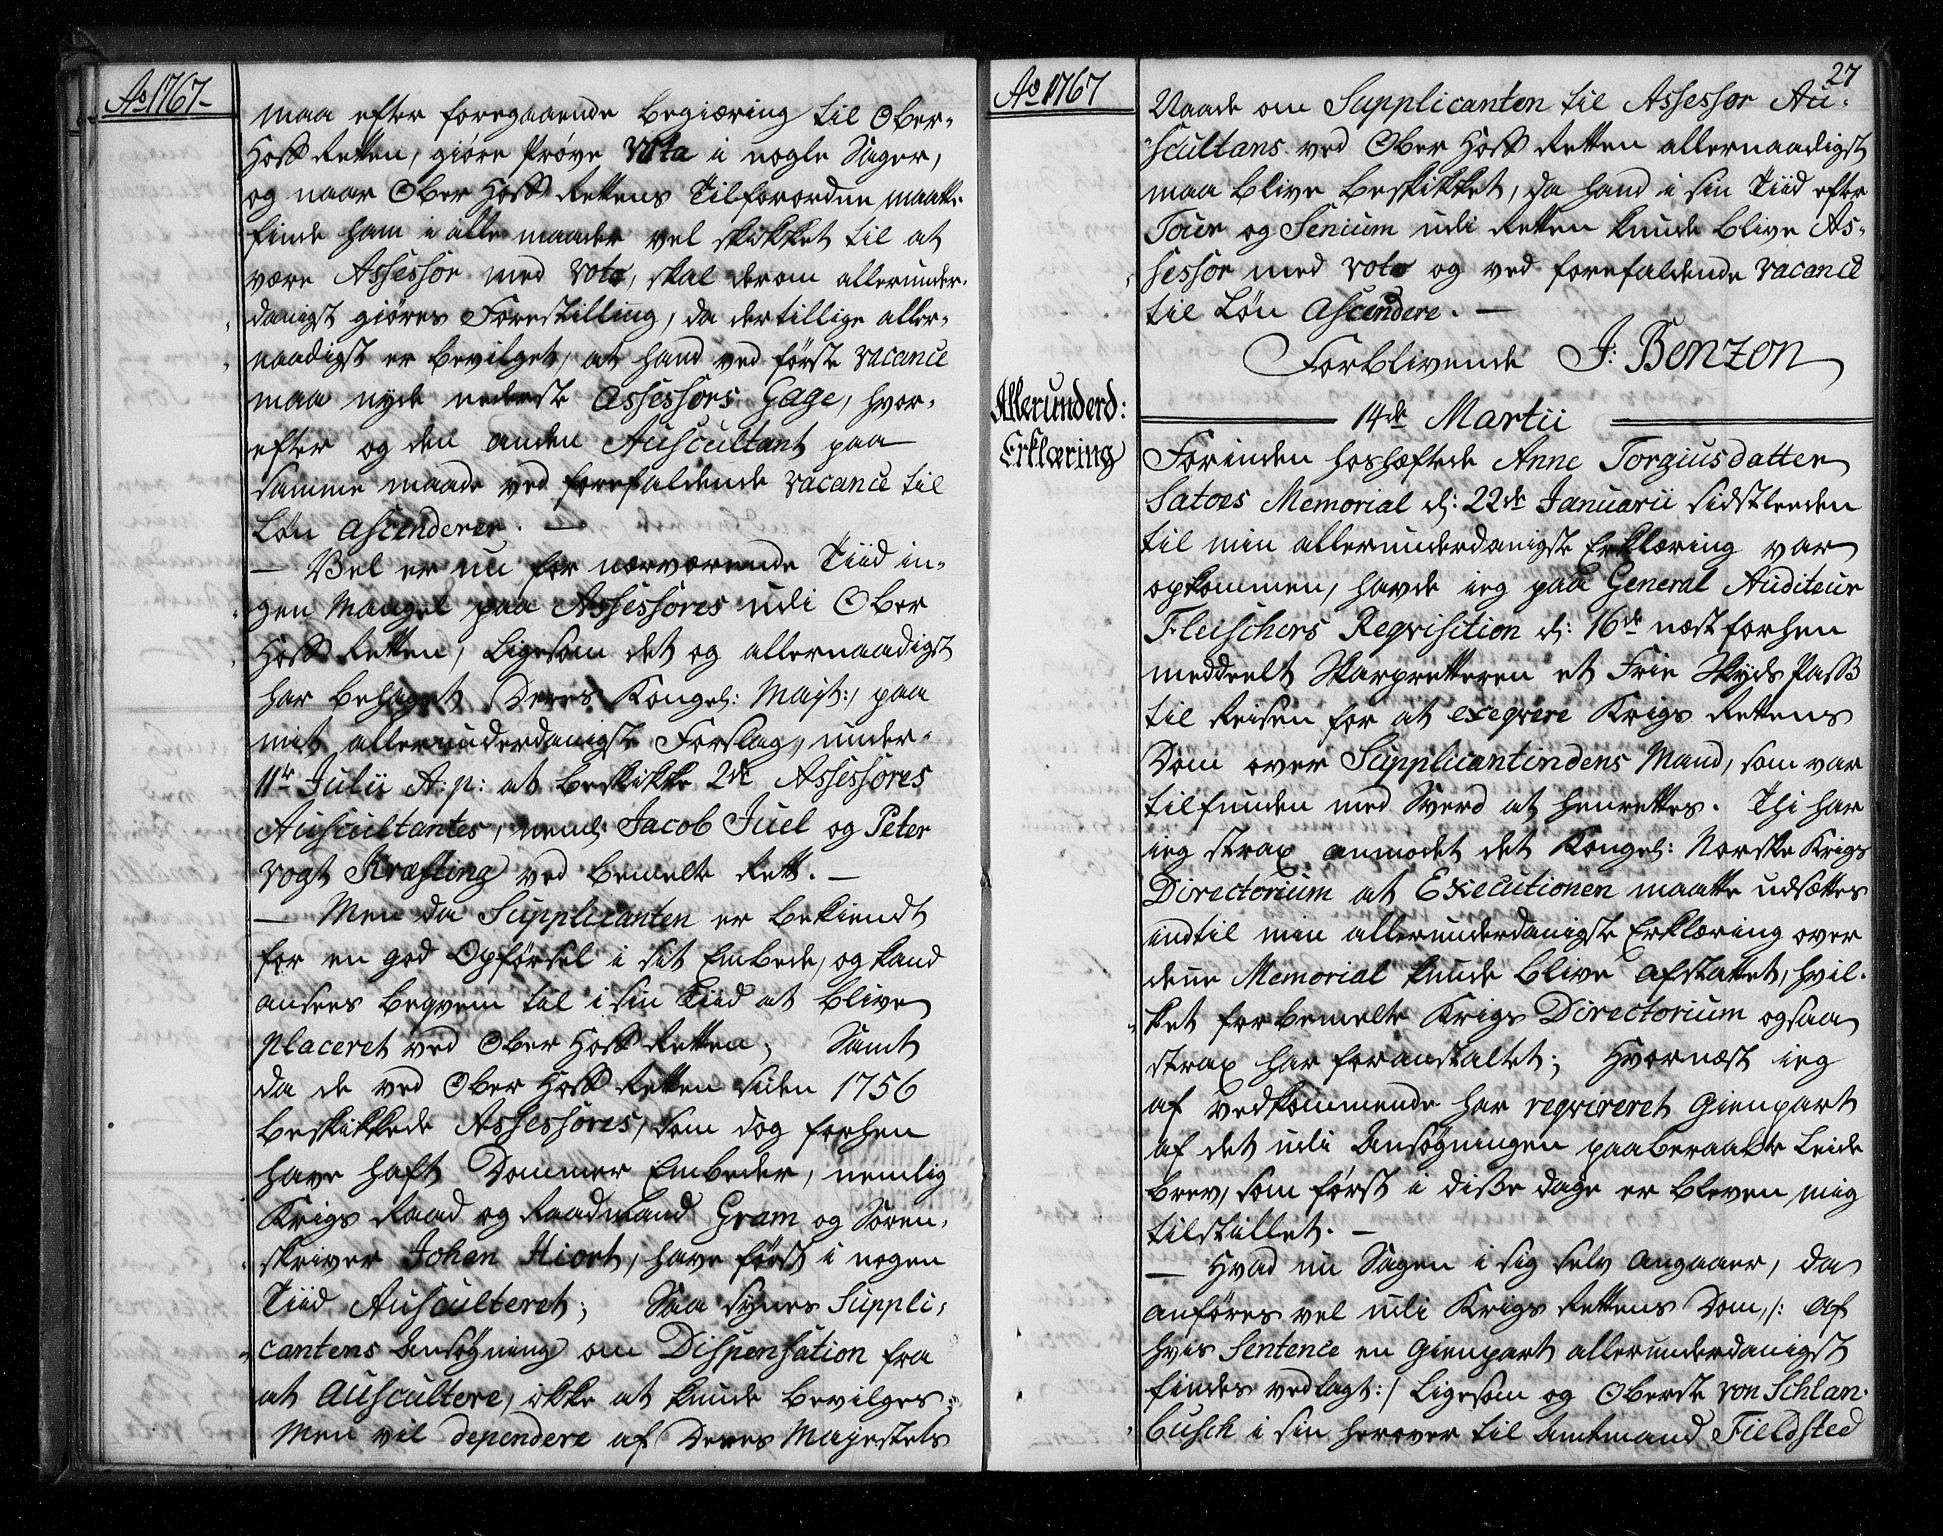 Ao 1767.
maa efter foregaaende begiæring til Ober-
Hoff Retten, giøre Prøve Vota i nogle Sager,
og naar Ober Hoff Rettens Tilforordne maatte
finde ham i alle maader vel skikket til at
være Assessor med Voto, skal derom allerunder-
danigst giøres Forestilling, da dertillige aller-
naadigst er bevilget, at hand ved første vacance
maa nyde nederste Assessors Gage, hvor-
efter og den anden Auscultant paa
samme maade ved forefaldende vacance til
Løn ascenderer. —
— Vel er nu for nærværende Tiid in-
gen Mangel paa Assessores udi Ober
Hoff Retten, Ligesom det og allernaadigst
har behaget Deres Kongel: Mayt:, paa
mit allerunderdanigste Forslag, under
11te Julii A: p: at beskikke 2de Assessores
Auscultantes, neml: Jacob Juel og Peter
Vogt Kræfting ved bemelte Rett. —
— Men da Supplicanten er bekiendt
for en god Opførsel i sit Embede, og kand
ansees beqvem til i sin Tiid at blive
placeret ved Ober Hoff Retten; Samt
da de ved Ober Hoff Retten siden 1756
beskikkede Assessores, som dog forhen
have haft Dommer Embeder, nemlig
Krigs Raad og Raadmand Gram og Soren-
skriver Johan Hiort, have først i nogen
Tiid Ausculteret; Saa synes Suppli-
cantens Ansøgning om Dispensation fra
at Auscultere, ikke at kunde bevilges;
Men vil dependere af Deres Majestets
Ao 1767
27
Naade om Supplicanten til Assessor Au-
scultans ved Ober Hoff Retten allernaadigst
maa blive beskikket, da hand i sin Tiid efter
Tour og Senium udi Retten kunde blive As-
sessor med Voto og ved forefaldende vacance
til Løn ascendere. —
Forblivende J: Benzon
14de Martii
Allerunderd:
Erklæring
Forinden hoshæftede Anne Torgiusdatter
Satoes Memorial d: 22de Januarii sidstleeden
til min allerunderdanigste Erklæring var
opkommen, havde ieg paa General Auditeur
Fleischers Reqvisition d: 16de næst forhen
meddeelt Skarpretteren et Frie Skyds Pass
til Reisen for at exeqvere Krigs Rettens
Dom over Supplicantindens Mand, som var
tilfunden med Sverd at henrettes. Thi har
ieg strax anmodet det Kongel: Norske Krigs
Directorium at Executionen maatte udsættes
indtil min allerunderdanigste Erklæring over
dene Memorial kunde blive afstattet, hvil-
ket forbemelte Krigs Directorium ogsaa
strax har foranstaltet; Hvornæst ieg
af vedkommende har reqvireret Gienpart
af det udi Ansøgningen paaberaabte Leide
brev, som først i disse dage er bleven mig
tilstillet. —
— Hvad nu Sagen i sig selv angaaer, da
anføres vel udi Krigs Rettens Dom, /: af
hvis Sentence en Gienpart allerunderdanigst
findes vedlagt :/ Ligesom og Oberste von Schlan-
busch i sin herover til Amtmand Fieldsted